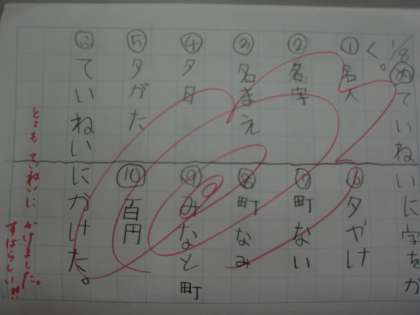 ていねいに字をか
く。
① 名人
② 名字
③ 名まえ
④ 夕日
⑤ 夕がた
⑥ 夕やけ
⑦ 町ない
⑧ 町なみ
⑨ みなと町
⑩ 百円
ていねいにかけた。
とても ていねいに かけました。
すばらしい!!